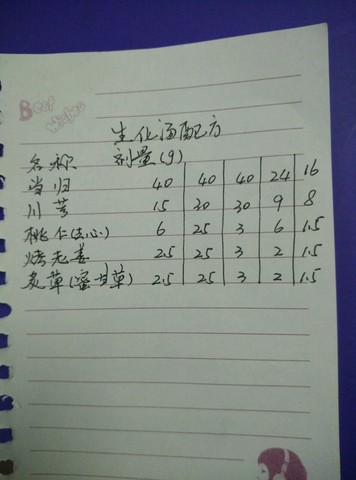 Best
Wishes
生化汤配方
名称 剂量(g)
当归 40 40 40 24 16
川芎 15 30 30 9 8
桃仁(去心) 6 25 3 6 1.5
烤老姜 2.5 25 3 2 1.5
炙草(蜜甘草) 2.5 25 3 2 1.5